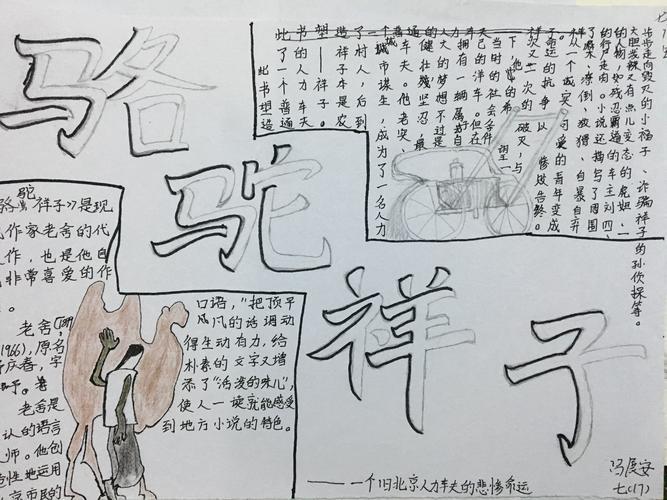 骆驼祥子
此书塑造
了一个普通
的人力车夫
——祥子。
祥子本是农
村人，后到
城市谋生，成为了一名人力
车夫。他老实、
健壮、坚忍，最
大的梦想不过是
拥有一辆属于自
己的洋车。但在
当时的社会条件
下，他的希望一
次又一次的破灭，与
命运的抗争以惨败告终。
祥子从一个诚实可爱的青年变成
了麻木、潦倒、狡猾、自暴自弃
的行尸走肉。小说还描写了周围
的人物，如残忍霸道的车主刘四、
大胆泼辣又有点儿变态的虎妞、一
步步走向毁灭的小福子、诈骗祥子的孙侦探等。
骆驼祥子》是现
作家老舍的代
作，也是他自
非常喜爱的作
。
老舍(
1966)，原名
庆春，字
予。著
老舍是
认的语言
师。他创
性地运用
京市民的
口语，“把顶平
凡的话调动
得生动有力，给
朴素的文字又增
添了“活泼的味儿”，
使人一读就能感受
到地方小说的特色。
——一个旧北京人力车夫的悲惨命运
冯辰安
七(17)